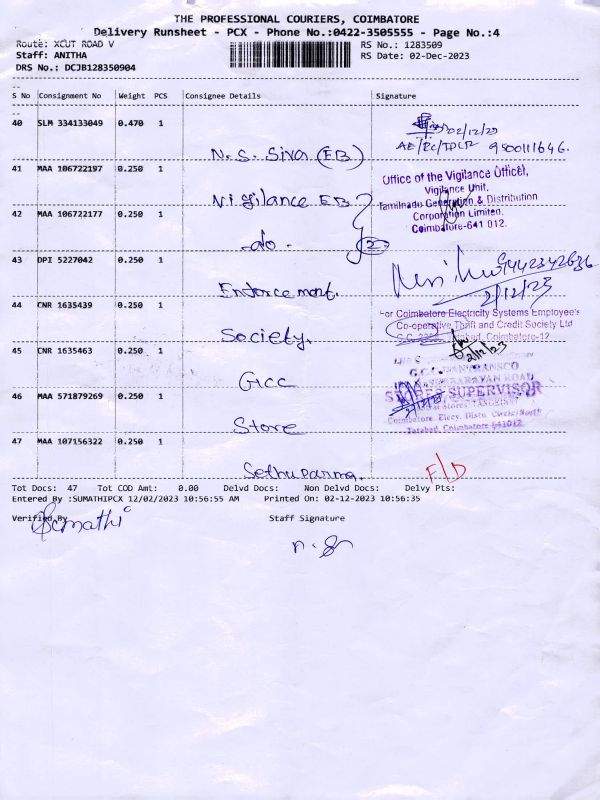 THE PROFESSIONAL COURIERS, COIMBATORE
Delivery Runsheet - PCX - Phone No.:0422-3505555 - Page No.:4
Route: XCUT ROAD V
RS No.: 1283509
Staff: ANITHA
RS Date: 02-Dec-2023
DRS No.: DCJB128350904
S No Consignment No Weight PCS Consignee Details Signature
40 SLM 334133049 0.470 1
02/12/23
AE/ 9500111646.
N. S. Siva (EB)
41 MAA 106722197 0.250 1
Office of the Vigilance Officer,
Vigilance Unit,
Vigilance EB
Tamilnadu Generation & Distribution
42 MAA 106722177 0.250 1
Corporation Limited,
Coimbatore-641 012.
-do- (2)
43 DPI 5227042 0.250 1
9442342636
Enforcement.
2/12/23
44 CNR 1635439 0.250 1
For Coimbatore Electricity Systems Employee's
Co-operative Thrift and Credit Society Ltd
Society.
Coimbatore-12
2/12/23
45 CNR 1635463 0.250 1
Gcc
STORES SUPERVISOR
46 MAA 571879269 0.250 1
Coimbatore. Elecy. Distn. Circle/North
Tatabad, Coimbatore 641012.
Store
47 MAA 107156322 0.250 1
F/D
Sethuparma.
Tot Docs: 47 Tot COD Amt: 0.00 Delvd Docs: Non Delvd Docs: Delvy Pts:
Entered By :SUMATHIPCX 12/02/2023 10:56:55 AM Printed On: 02-12-2023 10:56:35
Verified By
Staff Signature